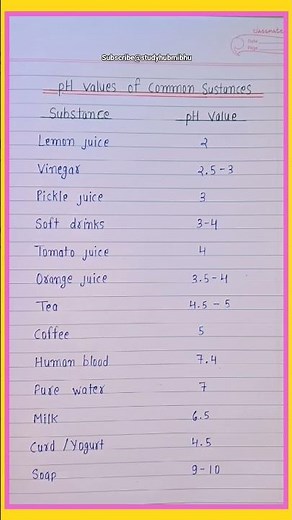 classmate
Date
Page
Subscribe@studyhubmibhu
pH values of Common Sustances
Substance pH value
Lemon juice 2
Vinegar 2.5-3
Pickle juice 3
Soft drinks 3-4
Tomato juice 4
Orange juice 3.5-4
Tea 4.5 - 5
Coffee 5
Human blood 7.4
Pure water 7
Milk 6.5
Curd /Yogurt 4.5
Soap 9-10